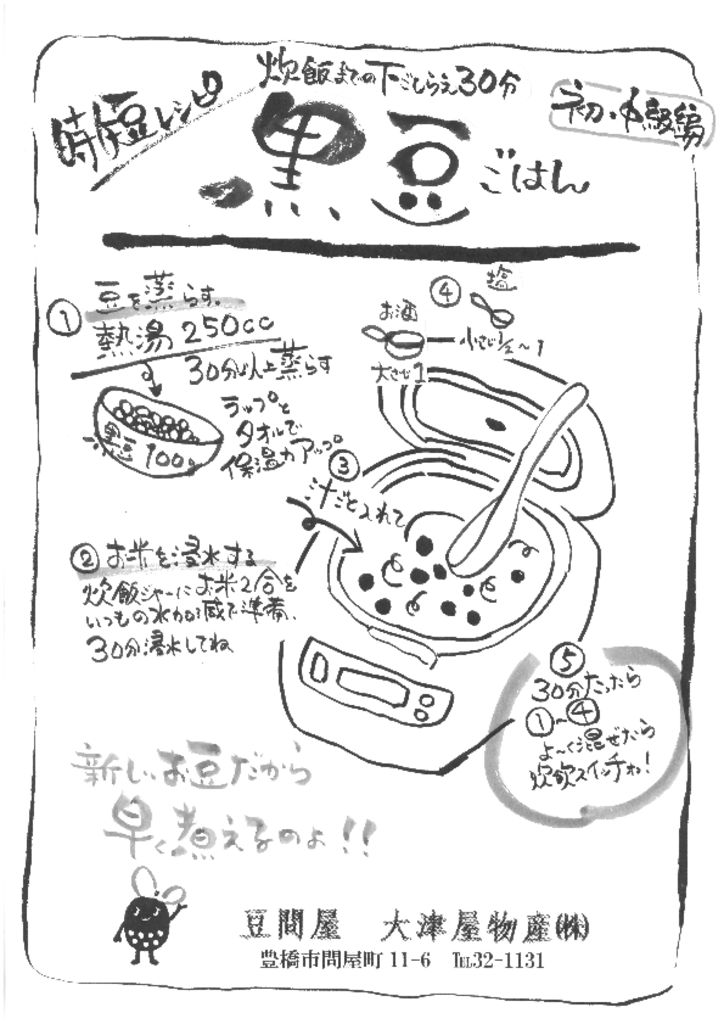 時短豆レシピ
炊飯までの下ごしらえ30分
初・中級編
黒豆ごはん
① 豆を蒸らす。
熱湯 250cc
30分以上蒸らす
ラップと
タオルで
保温力アップ
黒豆
100g
② お米を浸水する
炊飯ジャーにお米2合を
いつもの水加減で準備、
30分浸水してね
③
汁ごと入れて
④
塩
小さじ1/2〜1
お酒
大さじ1
⑤
30分たったら
①〜④
よ〜く混ぜたら
炊飯スイッチォン!
新しいお豆だから
早く煮えるのよ!!
豆問屋 大津屋物産㈱
豊橋市問屋町 11-6 ℡32-1131